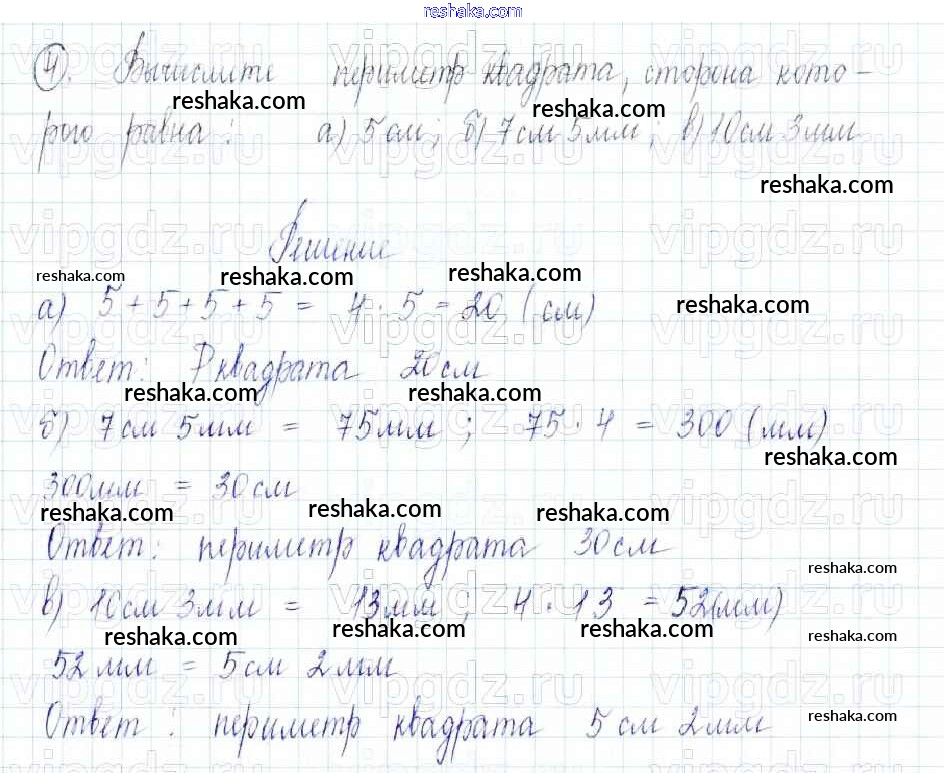 reshaka.com
4). Вычислите периметр квадрата, сторона кото-
reshaka.com reshaka.com
рого равна: а) 5 см; б) 7 см 5 мм; в) 10 см 3 мм
reshaka.com
Решение
reshaka.com reshaka.com reshaka.com
а) 5 + 5 + 5 + 5 = 4 · 5 = 20 (см)
reshaka.com
Ответ: P квадрата 20 см
reshaka.com reshaka.com
б) 7 см 5 мм = 75 мм; 75 · 4 = 300 (мм)
reshaka.com
300 мм = 30 см
reshaka.com reshaka.com reshaka.com
Ответ: периметр квадрата 30 см
reshaka.com
в) 10 см 3 мм = 13 мм; 4 · 13 = 52 (мм)
reshaka.com reshaka.com reshaka.com reshaka.com
52 мм = 5 см 2 мм
Ответ: периметр квадрата 5 см 2 мм
reshaka.com
vipgdz.ru